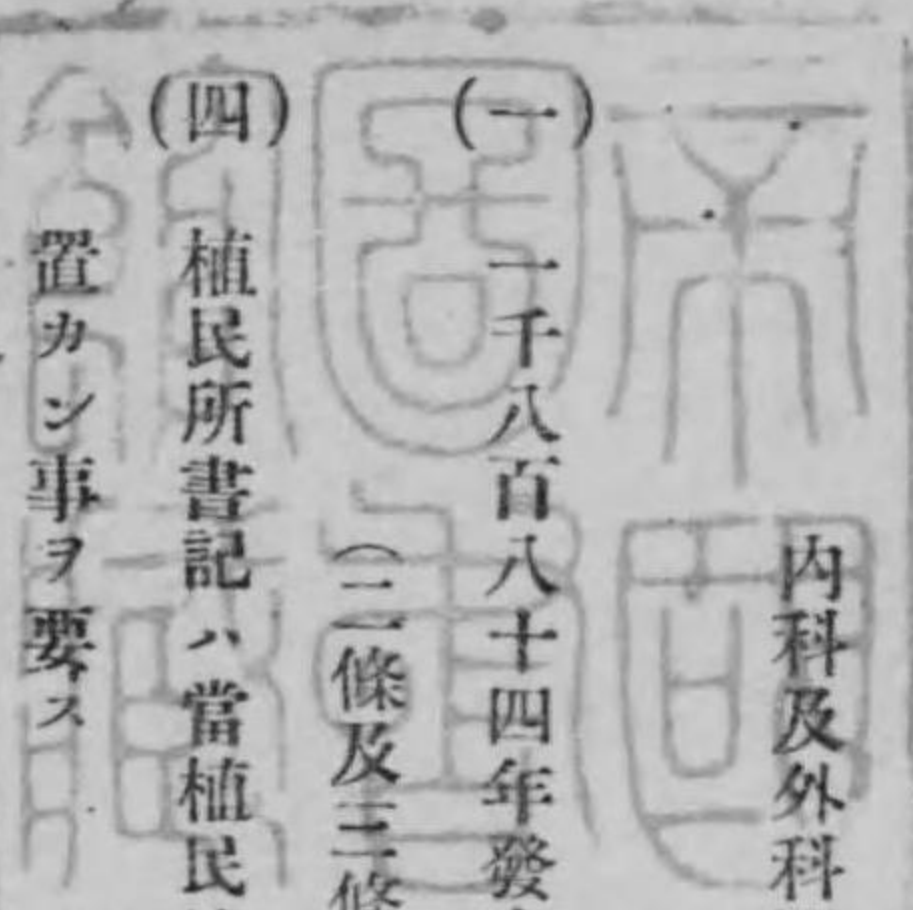 内科及外科
(一) 一千八百八十四年發
(二條及三條
(四) 植民所書記ハ當植民
置カン事ヲ要ス